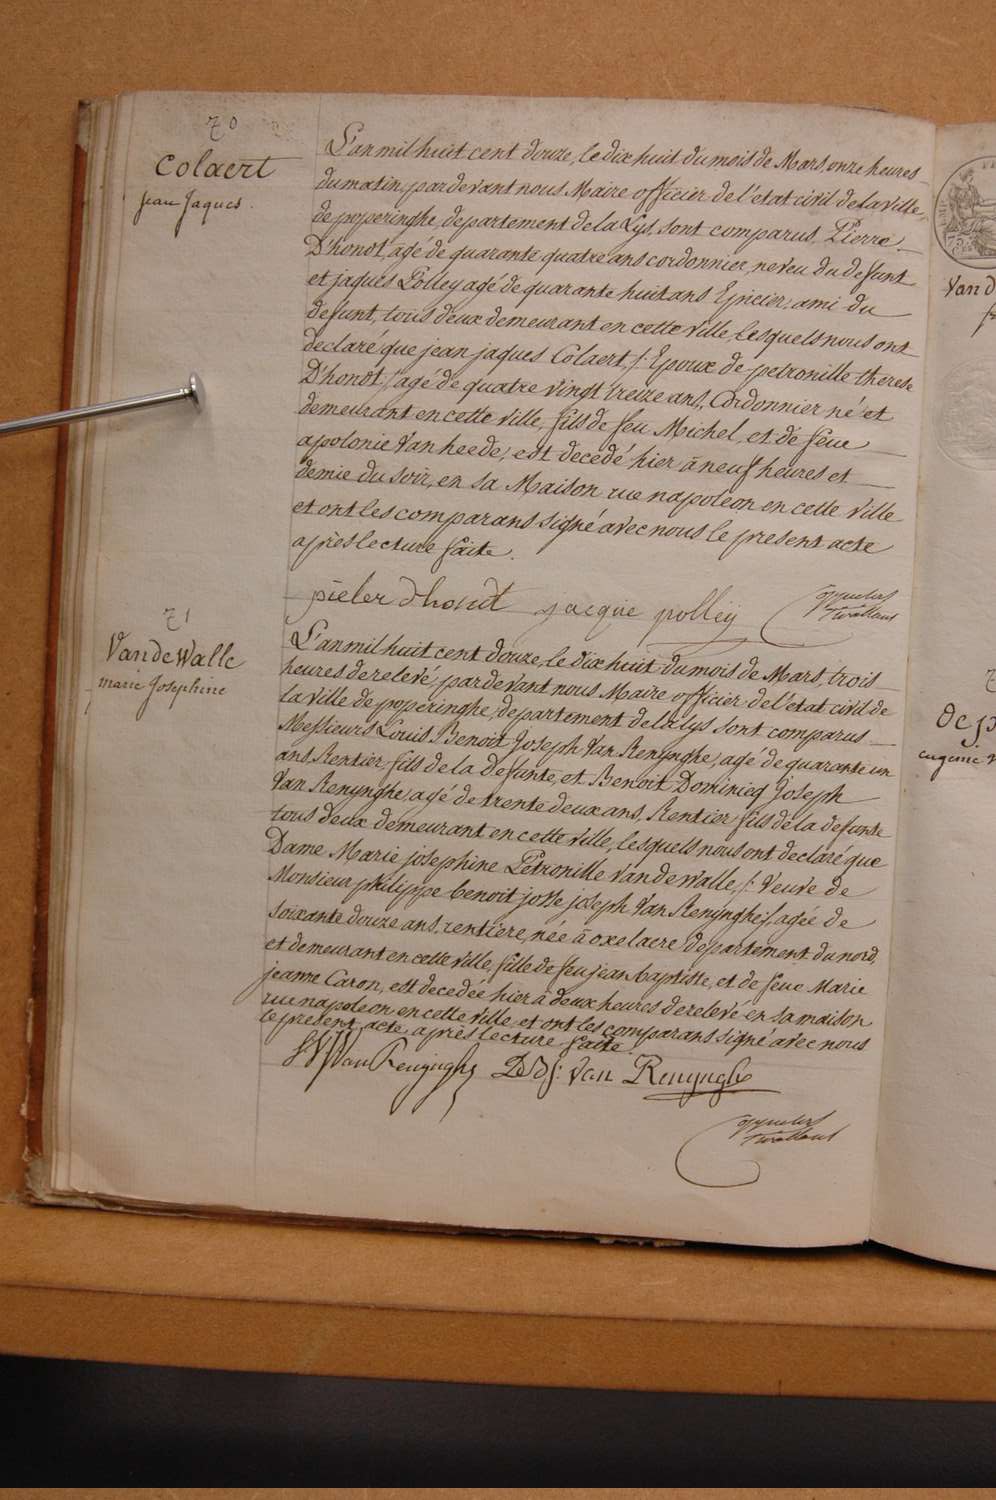 70
Colaert
jean Jaques.
L'an mil huit cent douze, le dix huit du mois de Mars, onze heures
du matin, par devant nous Maire officier de l'etat civil de la ville
de poperinghe, departement de la Lys, sont comparus, Pierre
D'hondt, agé de quarante quatre ans cordonnier, neveu du defunt
et jaques Polley agé de quarante huit ans Epicier, ami du
defunt, tous deux demeurant en cette ville, lesquels nous ont
declaré que jean jaques Colaert, /: Epoux de petronille therese
D'hondt :/ agé de quatre vingt treize ans, Cordonnier né et
demeurant en cette ville, fils de feu Michel, et de feue
apolonie Van heede, est decedé hier à neuf heures et
demie du soir, en sa Maison rue napoleon en cette ville
et ont les comparans signé avec nous le present acte
après lecture faite.
pieter dhondt jacque polleÿ
71
Van de Walle
marie Josephine
L'an mil huit cent douze, le dix huit du mois de Mars, trois
heures de relevé, par devant nous Maire officier de l'etat civil de
la ville de poperinghe, departement de la lys sont comparus
Messieurs Louis Benoit Joseph Van Renynghe, agé de quarante un
ans Rentier fils de la defunte, et Benoit Dominicq Joseph
Van Renynghe agé de trente deux ans, Rentier fils de la defunte
tous deux demeurant en cette ville, lesquels nous ont declaré que
Dame Marie josephine Pétronille Van de Walle, /: Veuve de
Monsieur philippe benoit josse joseph Van Renynghe :/ agée de
soixante douze ans, rentiere, née à oxelaere departement du nord,
et demeurant en cette ville, fille de feu jean baptiste, et de feue Marie
jeanne Caron, est decedée hier à deux heures de relevé en sa maison
rue napoleon en cette ville et ont les comparans signé avec nous
le present acte après lecture faite.
Van Renynghe Van Renynghe
Van D
De p
eugenie